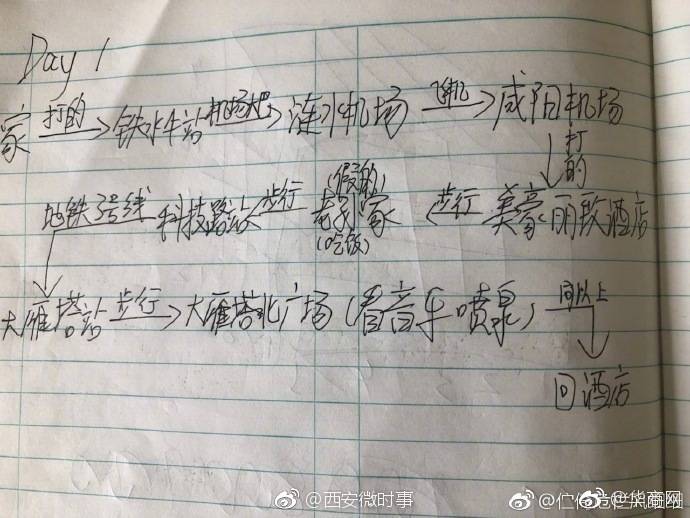 Day 1
家 打的 铁心桥站 机场大巴 禄口机场 飞机 咸阳机场
打的
地铁3号线 科技路站 步行 老孙家 (假的) (吃饭) 步行 美豪丽致酒店
大雁塔站 步行 大雁塔北广场(看音乐喷泉) 同以上
回酒店
@西安微时事 @华商网